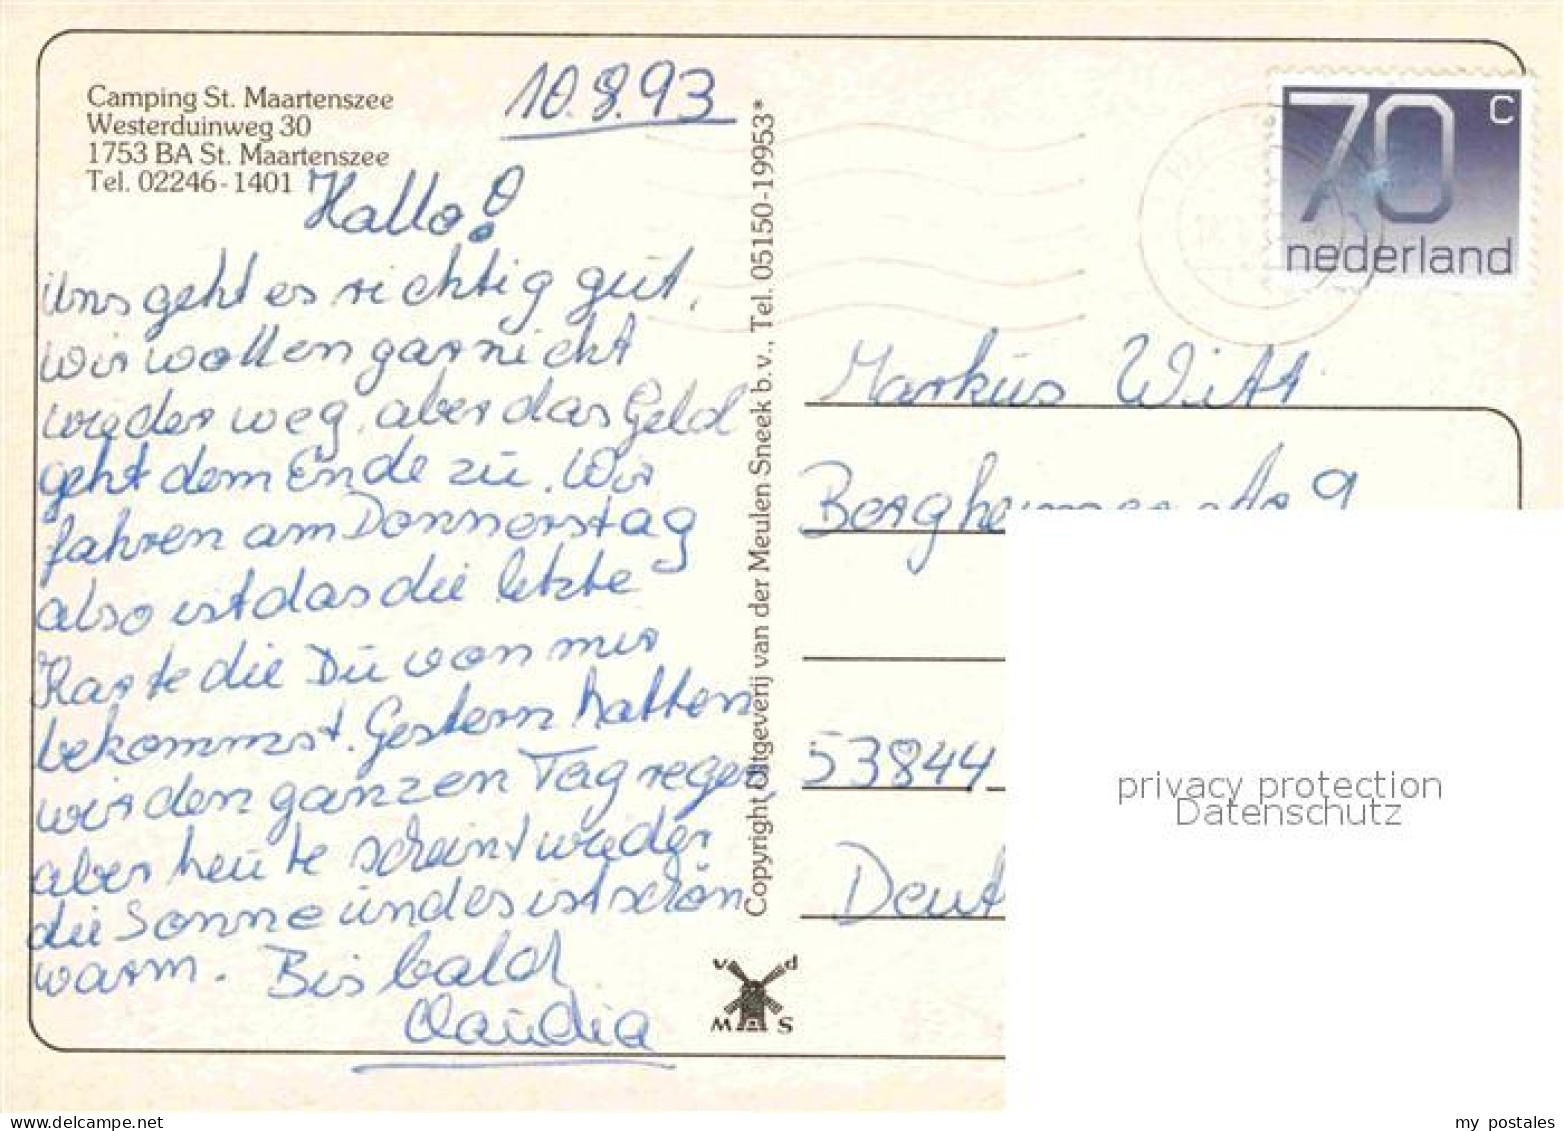 Camping St. Maartenszee
Westerduinweg 30
1753 BA St. Maartenszee
Tel. 02246-1401
10.8.93
Hallo!
Uns geht es richtig gut,
wir wollen garnicht
wieder weg, aber das Geld
geht dem Ende zu. Wir
fahren am Donnerstag
also ist das die letzte
Karte die Du von mir
bekommst. Gestern hatten
wir den ganzen Tag regen,
aber heute scheint wieder
die Sonne und es ist schön
warm. Bis bald
Claudia
Copyright Uitgeverij van der Meulen Sneek b.v., Tel. 05150-19953*
v d
M S
70 c
nederland
Markus Witt
Bergheimer str 9
53844
Deut
privacy protection
Datenschutz
my postales